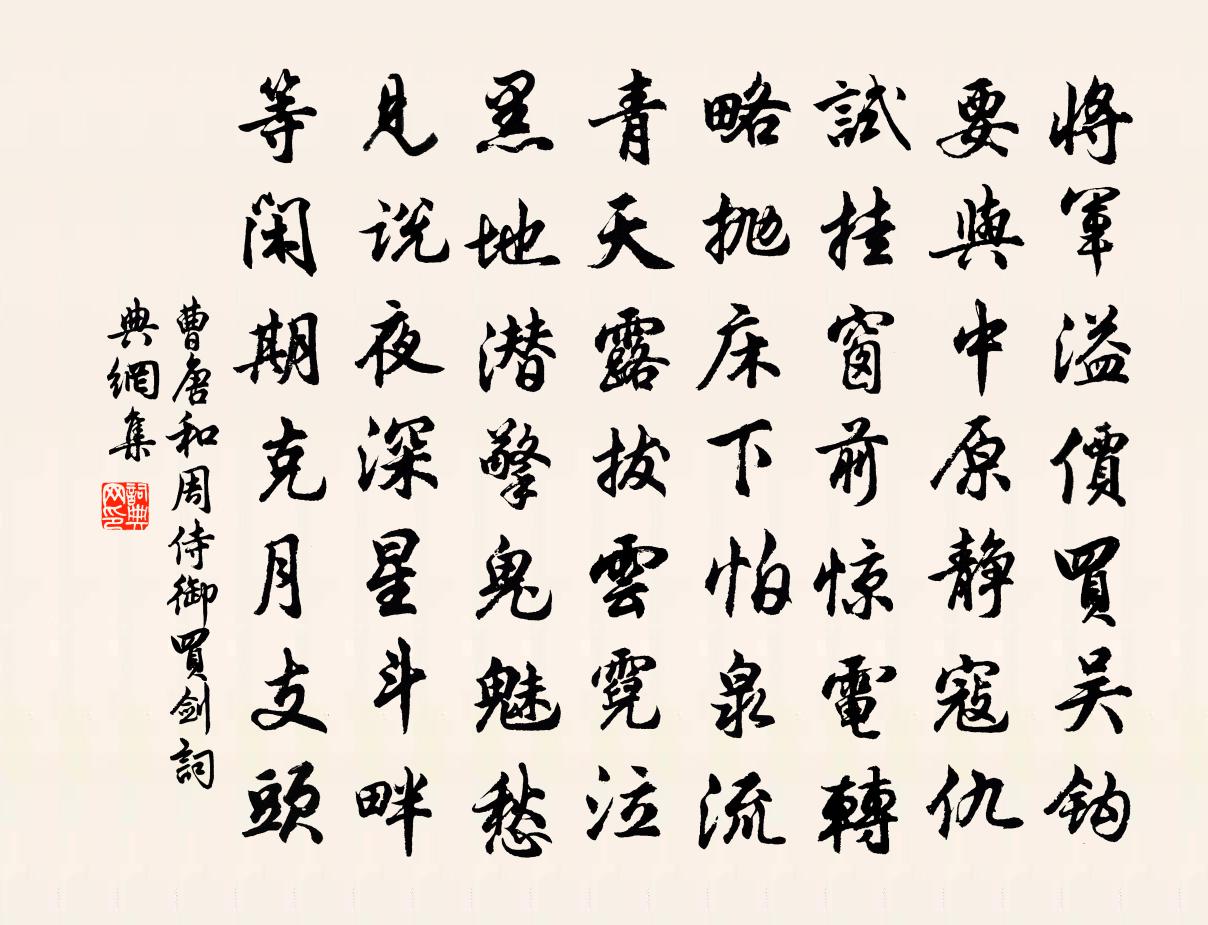 將軍溢價買吴鈎
要與中原静寇仇
試挂窗前惊電轉
略抛床下怕泉流
青天露拔雲霓泣
黑地潜擎鬼魅愁
見说夜深星斗畔
等閑期克月支頭
曹唐和周侍御買剑詞
典網集
詞典网印